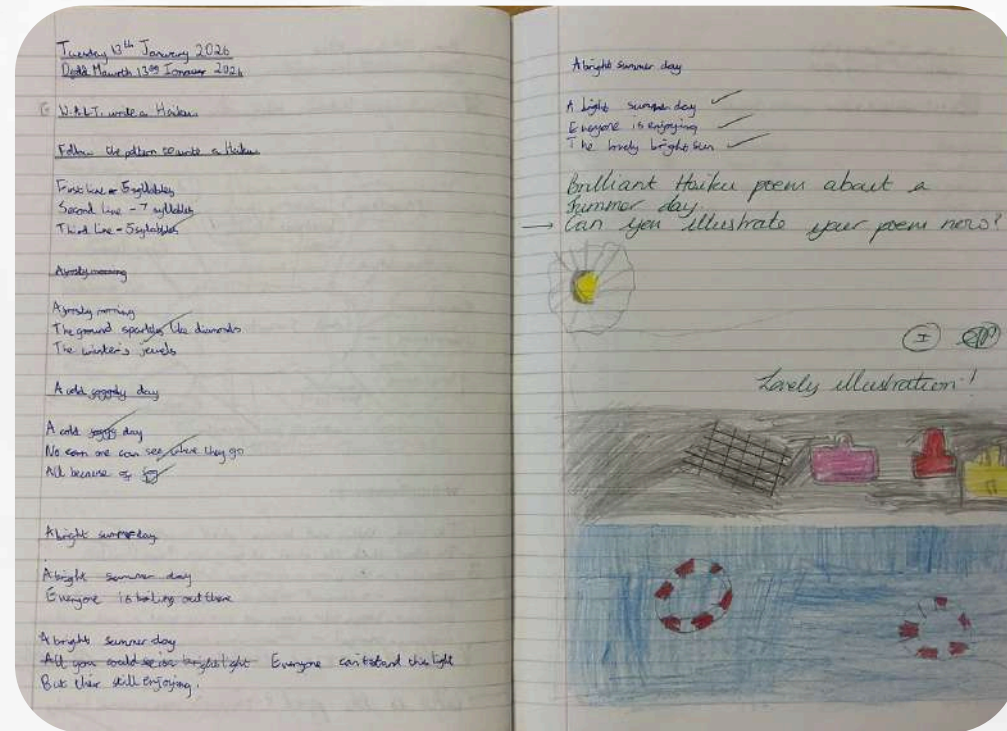 Tuesday 13th January 2026
Dydd Mawrth 13eg Ionawr 2026
W.A.L.T. write a Haiku
Follow the pattern to write a Haiku
First line - 5 syllables
Second line - 7 syllables
Third line - 5 syllables
A frosty morning
A frosty morning
The ground sparkles like diamonds
The winter's jewels
A cold foggy day
A cold foggy day
No one can see where they go
All because of
A bright summer day
A bright summer day
Everyone is boiling out there
A bright summer day
All you could see is bright light Everyone can't stand this light
But their still enjoying.
A bright summer day
A bright summer day
Everyone is enjoying
The lovely bright sun
Brilliant Haiku poem about a
summer day.
→ Can you illustrate your poem now?
I
Lovely illustration!